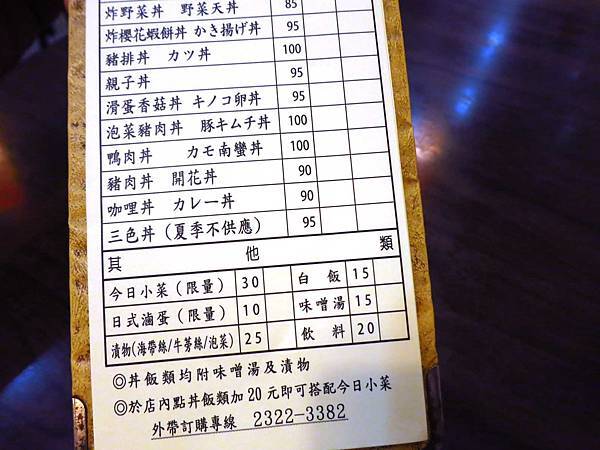 炸野菜丼 野菜天丼 85
炸櫻花蝦餅丼 かき揚げ丼 95
豬排丼 カツ丼 100
親子丼 95
滑蛋香菇丼 キノコ卵丼 95
泡菜豬肉丼 豚キムチ丼 100
鴨肉丼 カモ南蠻丼 100
豬肉丼 開花丼 90
咖哩丼 カレー丼 90
三色丼（夏季不供應） 95
其他類
今日小菜（限量） 30 白飯 15
日式滷蛋（限量） 10 味噌湯 15
漬物(海帶絲/牛蒡絲/泡菜) 25 飲料 20
◎丼飯類均附味噌湯及漬物
◎於店內點丼飯類加20元即可搭配今日小菜
外帶訂購專線 2322-3382